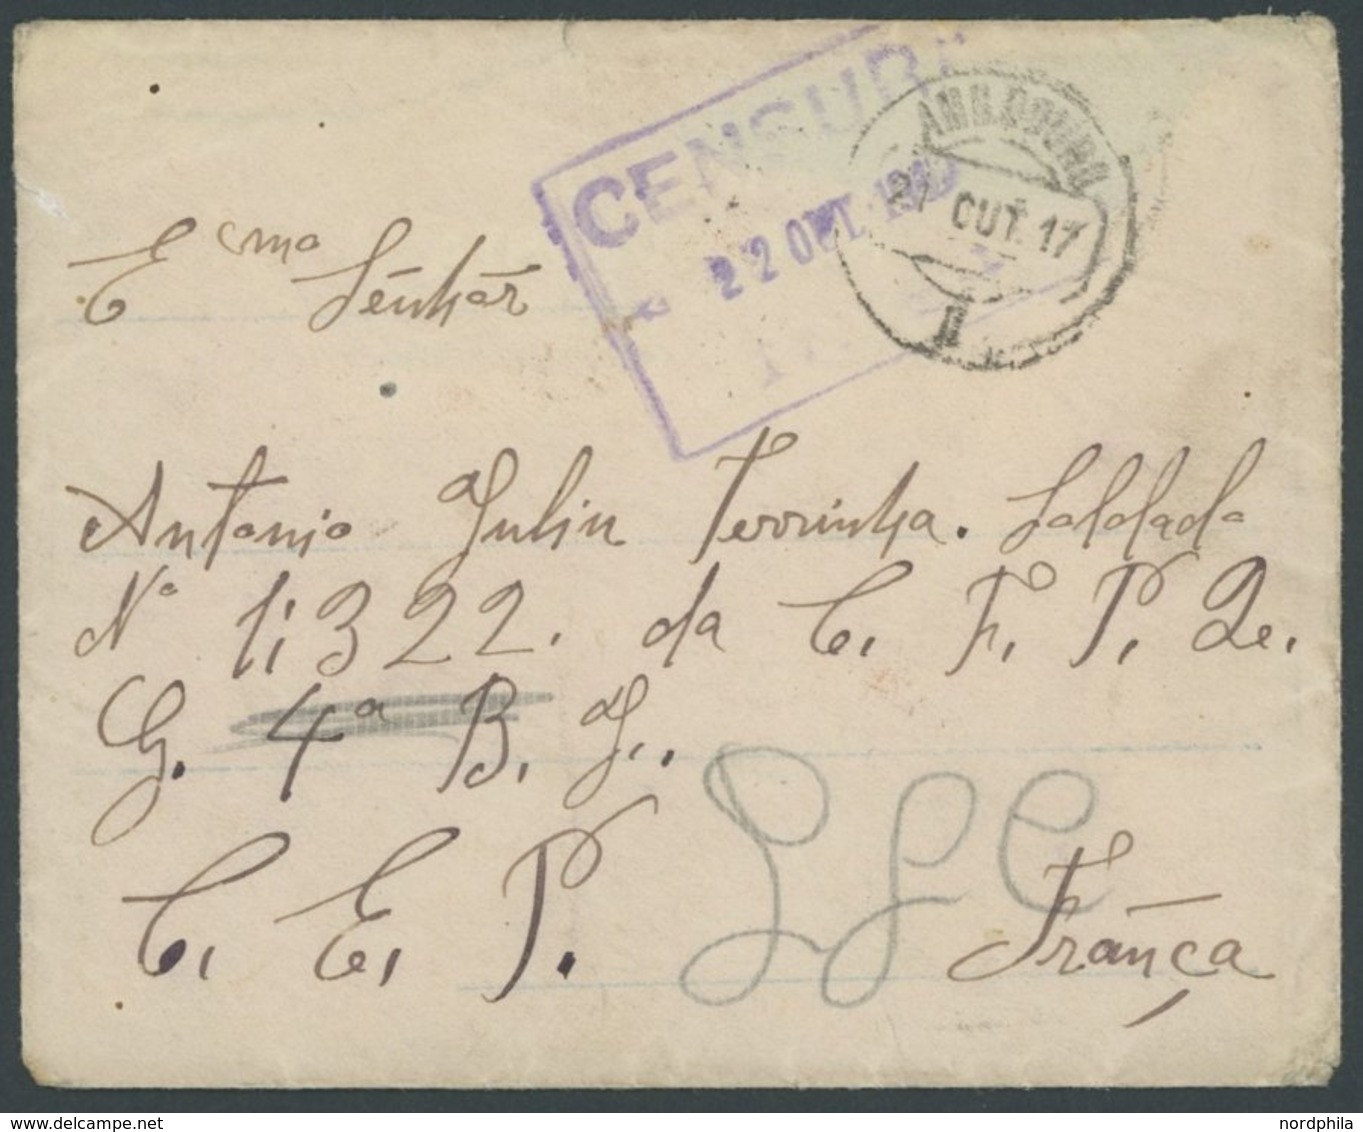 CENSUR
22 OUT. 1917
AMB. DOURO
21 OUT. 17
II
Ecmo Senhor
Antonio Julin Terrinha. Soldado
No 1:322. da C. F. P. 2e.
G. 4a B. J.
C. E. P.
França
www.delcampe.net
nordphila